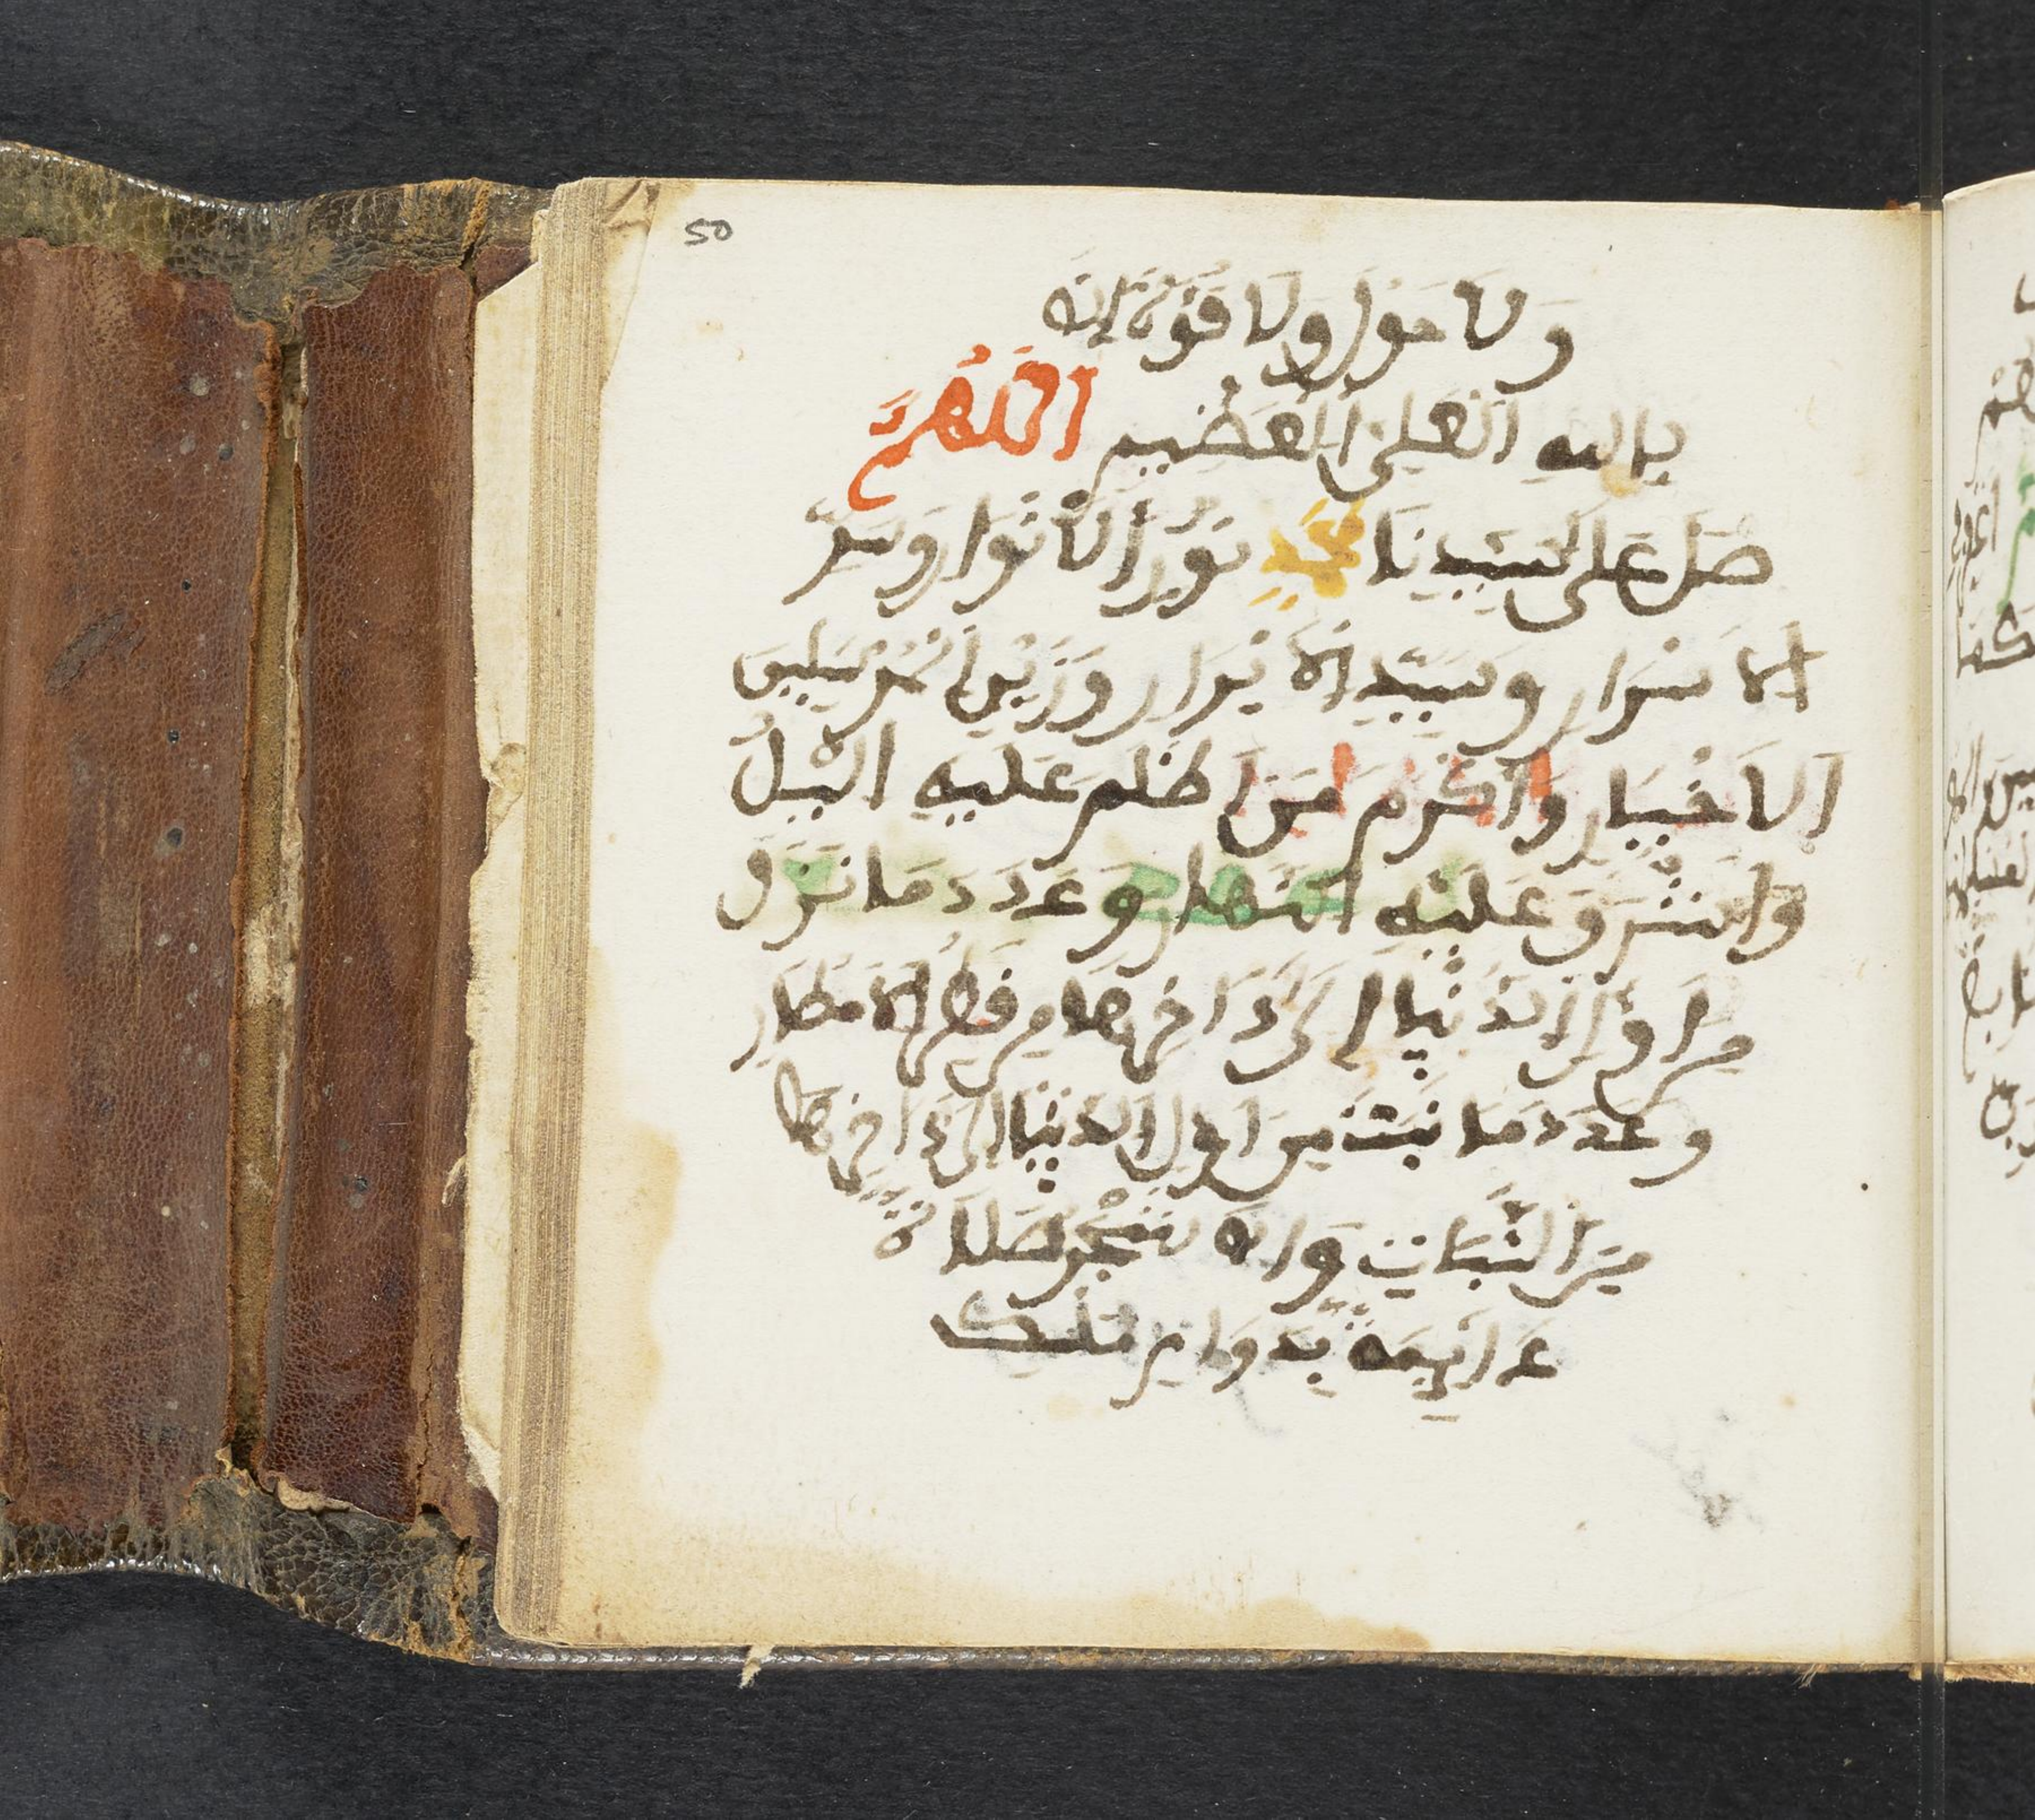 50
وَلَا حَوْلَ وَلَا قُوَّةَ إِلَّا
بِاللهِ الْعَلِيِّ الْعَظِيمِ اللَّهُمَّ
صَلِّ عَلَى سَيِّدِنَا مُحَمَّدٍ نُورِ الْأَنْوَارِ وَسِرِّ
الْأَسْرَارِ وَسَيِّدِ الْأَبْرَارِ وَزَيْنِ الْمُرْسَلِينَ
الْأَخْيَارِ وَأَكْرَمِ مَنْ أَظْلَمَ عَلَيْهِ الَّيْلُ
وَأَشْرَقَ عَلَيْهِ النَّهَارُ وَعَدَدَ مَا نَزَلَ
مِنْ أَوَّلِ الدُّنْيَا إِلَى ءَاخِرِهَا مِنْ قَطْرِ الْأَمْطَارِ
وَعَدَدَ مَا نَبَتَ مِنْ أَوَّلِ الدُّنْيَا إِلَى ءَاخِرِهَا
مِنَ النَّبَاتِ وَالْأَشْجَارِ صَلَاةً
دَائِمَةً بِدَوَامِ مُلْكِ